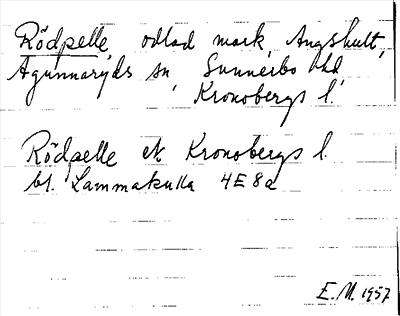 Rödpelle, odlad mark, Ängshult,
Agunnaryds sn, Sunnerbo hd,
Kronobergs l.
Rödpelle ek Kronobergs l.
bl. Lammakulla 4E8a
E.M. 1957